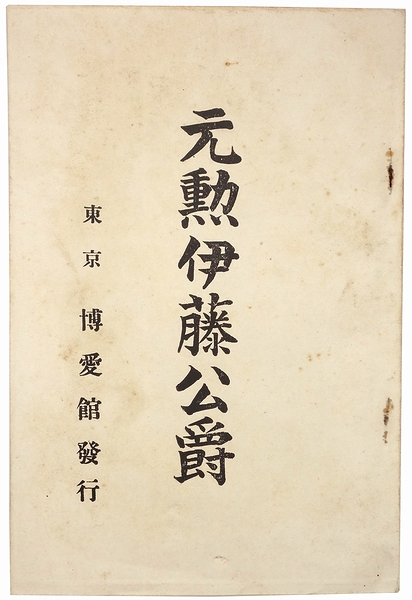 元勲伊藤公爵
東京 博愛館發行